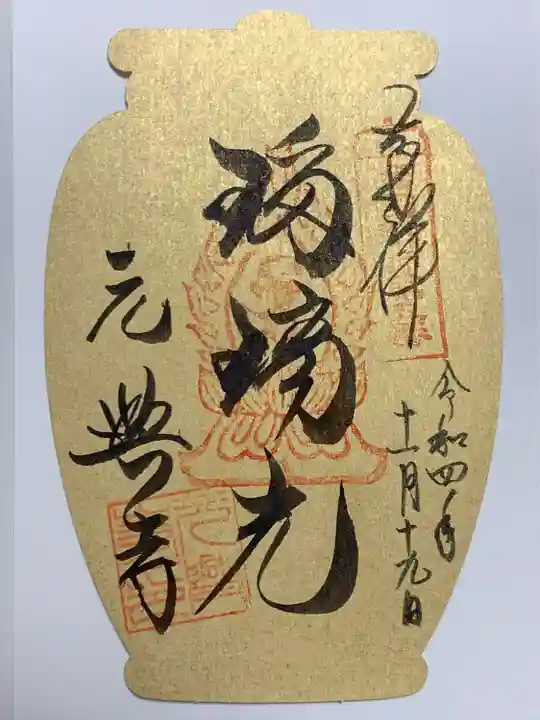 奉拝
令和四年
十一月十九日
瑠璃光
元興寺